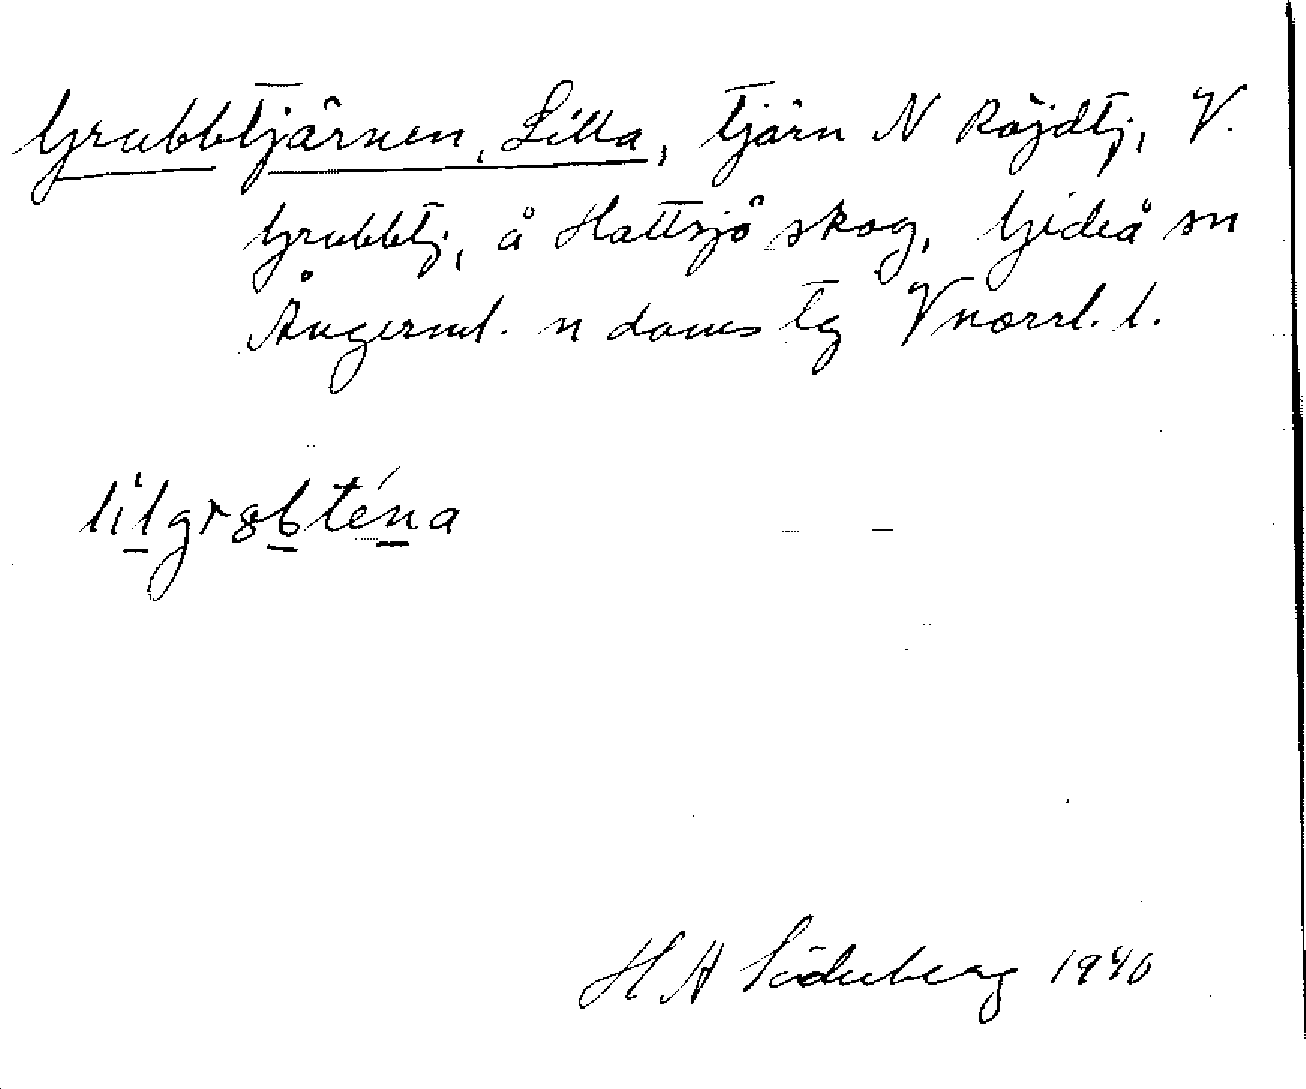 Grubbtjärnen, Lilla, tjärn N Röjdtj, V.
Grubbtj, å Hattsjö skog, Gideå sn
Ångerml. n doms tg Vnorrl. l.
lilgr8bténa
H A Söderberg 1940